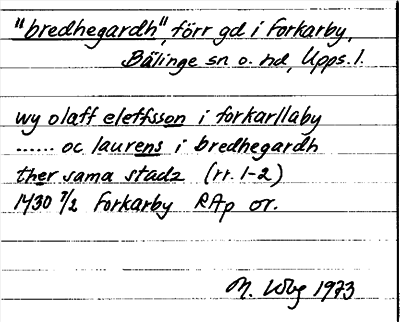 "bredhegardh", förr gd i Forkarby,
Bälinge sn o. hd, Upps. l.
wy olaff eleffsson i forkarllaby
...... oc laurens i bredhegardh
ther sama stadz (rr. 1-2)
1430 7/2 Forkarby RAp or.
1973